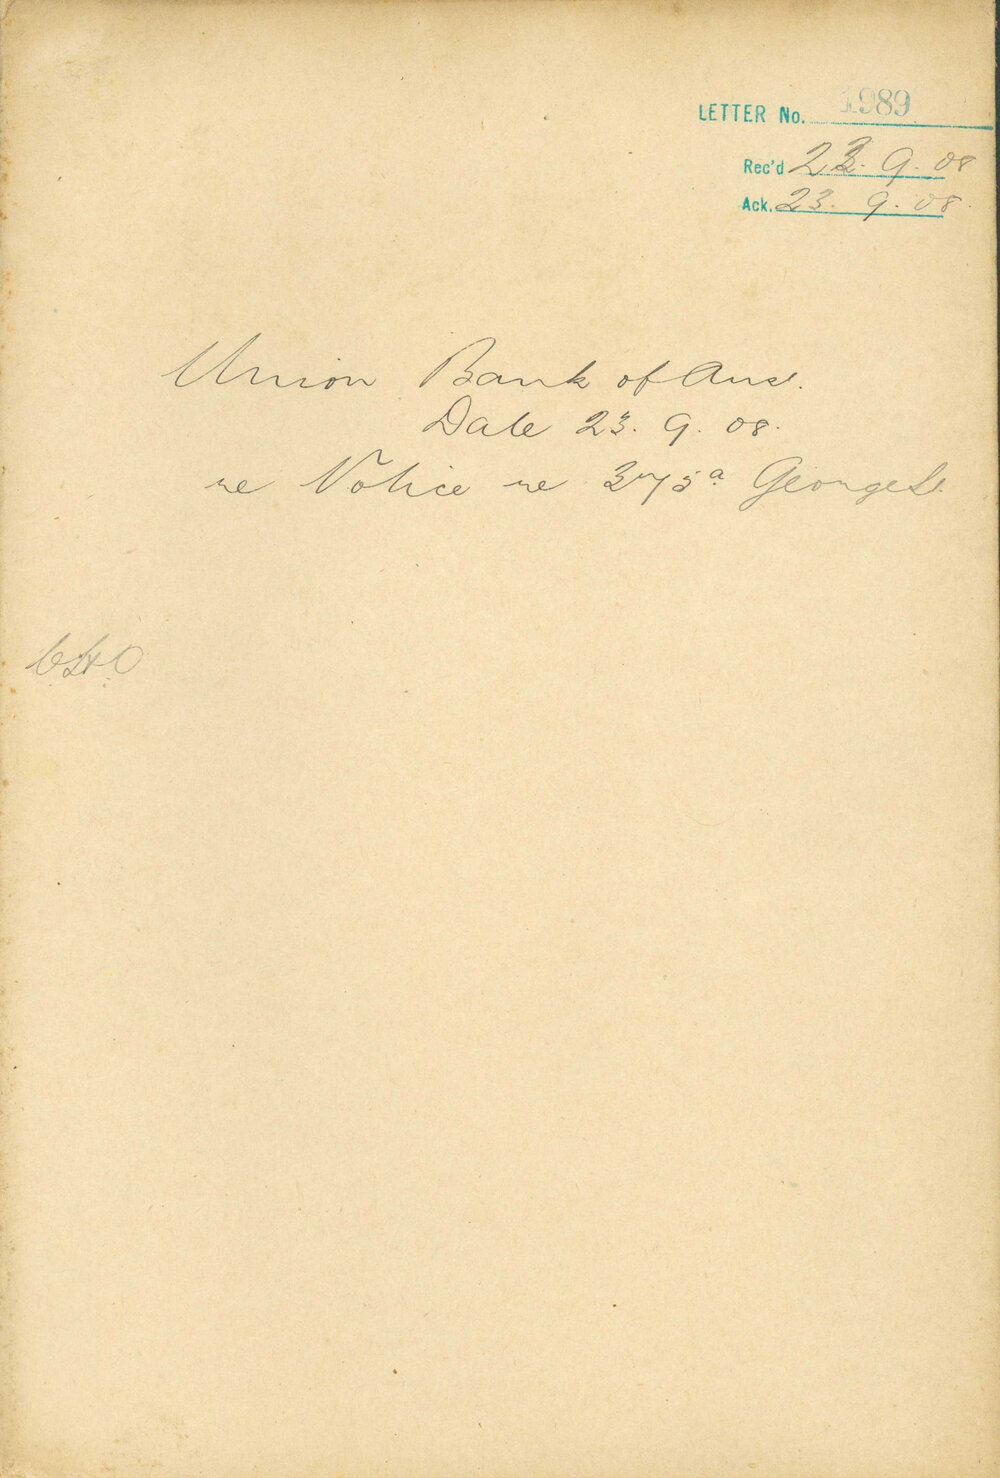 LETTER No. 1989
Rec'd 23. 9. 08
Ack. 23. 9. 08.
Union Bank of Aus.
Date 23. 9. 08.
re Notice re 375a George St.